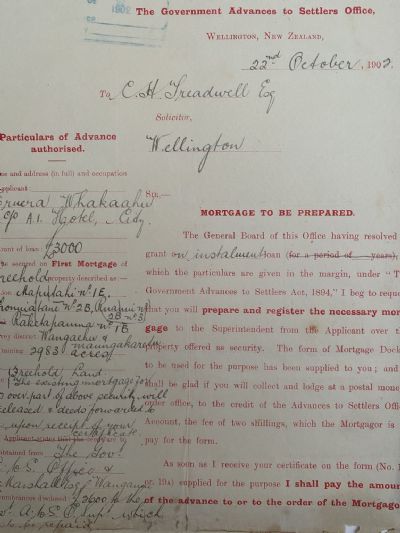 1902
The Government Advances to Settlers Office,
Wellington, New Zealand,
22nd October, 1902.
To C. H. Treadwell Esq
Solicitor,
Wellington
Particulars of Advance
authorised.
me and address (in full) and occupation
applicant
Eruera Whakaahu
c/o A.1. Hotel, City.
ount of loan: £3000
be secured on First Mortgage of
reehold property described as
Maputahi No 1E,
2B,
Raketapauma No 1B
vey district Wangaehu &
maungakaretu
ning 2983 acres
Freehold Land.
The existing mortgage for
over part of above security will
released & deeds forwarded to
upon receipt of your
certificate
obtained from The Gov.
Office &
Marshall Esq Wangan
umbrances disclosed £3600 to the
Supt which
Sir,—
MORTGAGE TO BE PREPARED.
The General Board of this Office having resolved
grant an instalment loan (for a period of years),
which the particulars are given in the margin, under "T
Government Advances to Settlers Act, 1894," I beg to reque
that you will prepare and register the necessary mor
gage to the Superintendent from the Applicant over th
property offered as security. The form of Mortgage Docu
to be used for the purpose has been supplied to you; and
shall be glad if you will collect and lodge at a postal mone
order office, to the credit of the Advances to Settlers Offi
Account, the fee of two shillings, which the Mortgagor is
pay for the form.
As soon as I receive your certificate on the form (No. 1
or 19A) supplied for the purpose I shall pay the amou
of the advance to or to the order of the Mortgago